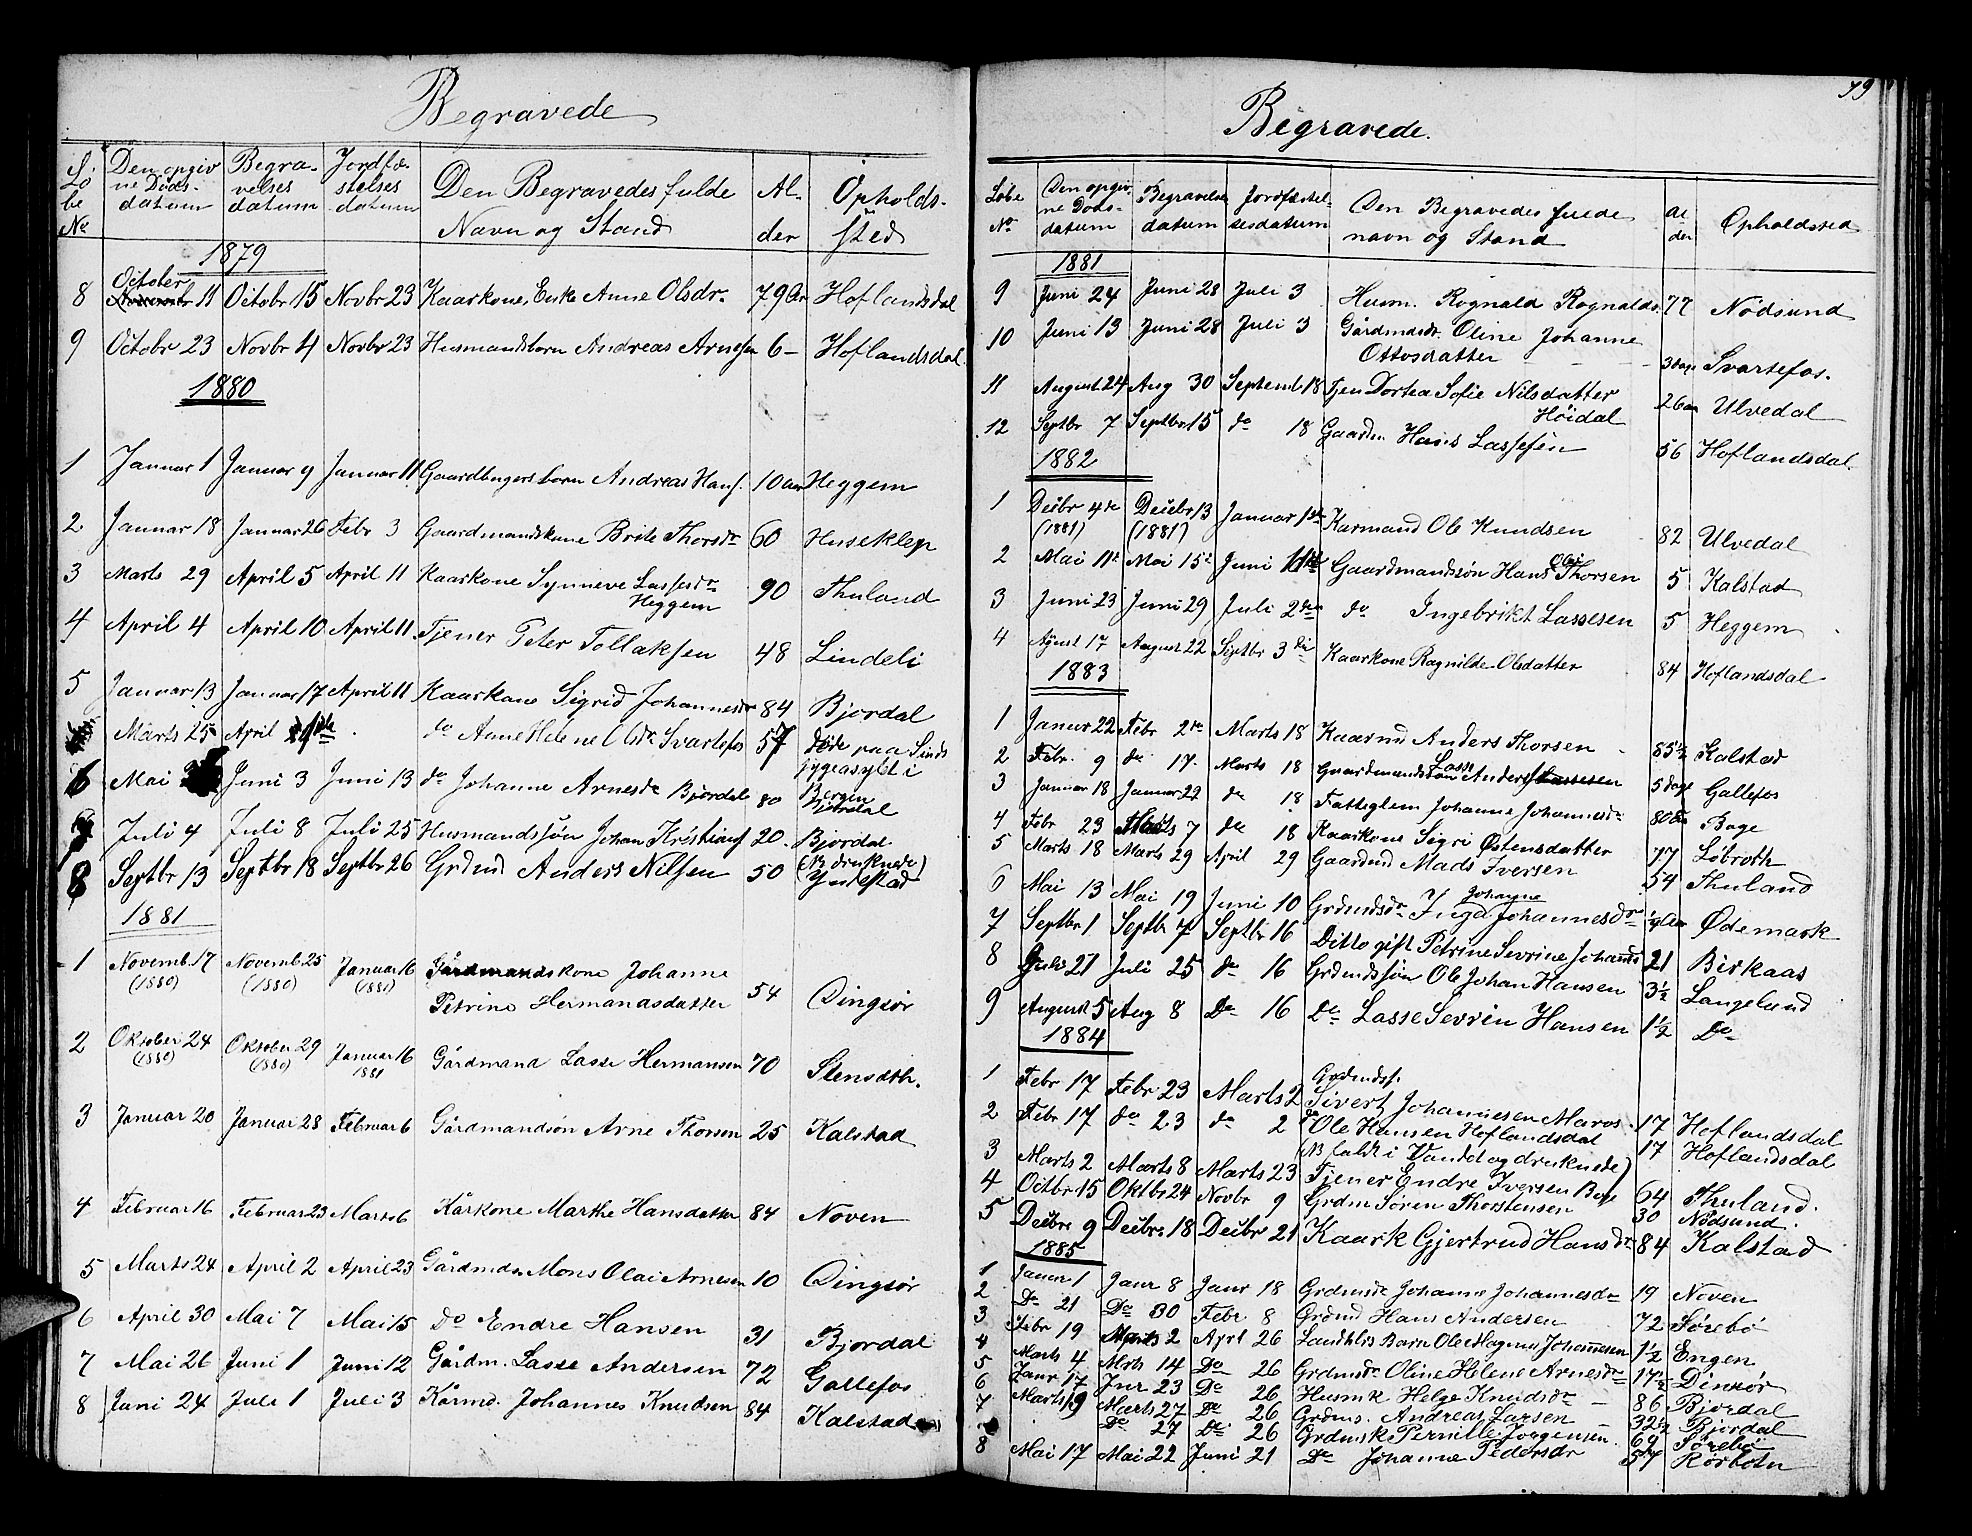 Begravede
Löbe No | Den opgivne Döds-datum | Begravelses datum | Jordfæstelses datum | Den Begravedes fulde Navn og Stand | Alder | Opholdssted
1879
8 October 11 Octobr 15 Novbr 23 Kaarkone, Enke Anne Olsdr 79 Aar Hoflandsdal
9 Octobr 23 Novbr 4 Novbr 23 Husmandsbarn Andreas Arnesen 6 - Hoflandsdal
1880
1 Januar 1 Januar 9 Januar 11 Gaardbrugers barn Andreas Hans. 10 aar Heggem
2 Januar 18 Januar 26 Febr 3 Gaardmandskone Brite Thorsdr 60 Huseklep
3 Marts 29 April 5 April 11 Kaarkone Synneve Lassesdr Heggem 90 Thuland
4 April 4 April 10 April 11 Tjener Peter Tollaksen 48 Lindeli
5 Januar 13 Januar 17 April 11 Kaarkone Sigrid Johannesdr 84 Bjordal
Marts 25 April do Anne Helene Olsdr Svartefos 57 döde paa Sindssygeasylet i Bergen
6 Mai Juni 3 Juni 13 do Johanne Arnesdr Bjordal 80 Bjordal
7 Juli 4 Juli 8 Juli 25 Husmandssön Johan Kristians 20. Bjordal (NB druknede)
8 Septbr 13 Septbr 18 Septbr 26 Grdmd Anders Nilsen 50 Yndestad
1881
1 Novemb. 17 (1880) Novemb. 25 (1880) Januar 16 (1881) Gårdmandskone Johanne Petrine Hermandsdatter 54 Dingsör
2 Oktober 24 (1880) Oktober 29 (1880) Januar 16 1881 Gårdmand Lasse Hermansen 70 Stensdth.
3 Januar 20 Januar 28 Februar 6 Gårdmandsön Arne Thorsen 25 Kalstad
4 Februar 16 Februar 23 Marts 6 Kårkone Marthe Hansdatter 84 Noven
5 Marts 24 April 2 April 23 Gårdmds Mons Olai Arnesen 10 Dingsör
6 April 30 Mai 7 Mai 15 Do Endre Hansen 31 Bjordal
7 Mai 26 Juni 1 Juni 12 Gårdm. Lasse Andersen 72 Gallefos
8 Juni 24 Juli 1 Juli 3 Kårmd. Johannes Knudsen 84 Kalstad
79
Begravede.
Löbe No | Den opgivne Döds-datum | Begravelses datum | Jordfæstelsesdatum | Den Begravedes fulde navn og Stand | Alder | Opholdssted
1881
9 Juni 24 Juni 28 Juli 3 Husm. Rognald Rognalds. 77 Nödsund
10 Juni 13 Juni 28 Juli 3 Gårdmdsdr. Oline Johanne Ottosdatter 3 dage Svartefos.
11 August 24 Aug 30 Septemb 18 Tjen Dortea Sofie Nilsdatter Höidal 26 aar Ulvedal
12 Septbr 7 Septbr 15 do 18 Gaardm Hans Lassesen 56 Hoflandsdal.
1882
1 Decbr 4de (1881) Decebr 13 (1881) Januar 1ste Karmand Ole Knudsen 82 Ulvedal
2 Mai 11te Mai 15de Juni 11te Gaardmandssön Hans Olai Thorsen 5 Kalstad
3 Juni 23 Juni 29 Juli 2den do Ingebrikt Lassesen 5 Heggem
4 Agust 17 August 22 Septbr 3die Kaarkone Ragnilde Olsdatter 84 Hoflandsdal
1883
1 Januar 22 Febr 2den Marts 18 Kaarmd Anders Thorsen 85½ Kalstad
2 Febr. 9 do 17. Marts 18 Gaardmandssön Lasse Anders 5 dage Gallefos
3 Januar 18 Januar 22 do 18 Fattiglem Johanne Johannesdr 80 Aar Bage
4 Febr 23 Marts 7 do 18 Kaarkone Sigri Östensdatter 77 Löbroth
5 Marts 18 Marts 29 April 29 Gaardmd Mads Iversen 54 Thuland
6 Mai 13 Mai 19 Juni 10 Grdmdsdr Inga Johanne Johannesdr Ödemark
7 Septbr 1 Septbr 7 Septbr 16 Ditto gift Petrine Sevrine Johannsd 21 Birkaas
8 Juli 21 Juli 25 do 16 Grdmdssön Ole Johan Hansen 3½ Langelund
9 August 5 Aug 8 Do 16 Do Lasse Sevrin Hansen 1½ Do
1884
1 Febr 17 Febr 23 Marts 2 Grdmdss. Sivert Johannesen Maros 17 Hoflandsdal
2 Febr 17 do 23 do 2 do Ole Hansen Hoflandsdal (NB faldt i Vandet og druknede) 17 Hoflandsdal
3 Marts 2 Marts 8 Marts 23 Tjener Endre Iversen Bage 64 Thuland.
4 Octbr 15 Oktbr 24 Novbr 9 Grdm Sören Thorstensen 30 Nödsund.
5 Decbr 9 Decbr. 18 Decbr 21 Kaark Gjertrud Hansdr 84 Kalstad
1885
1 Januar 1 Janr 8 Janr 18 Grdmsdr Johanne Johannesdr 19 Noven
2 Do 21 Do 30 Febr 8 Grdmd Hans Andersen 72 Sörebö
3 Febr 19 Marts 2 Aprl 26 Landhls Barn Ole Magnus Johannesen 1½ Engen
4 Marts 4 Mrts 14 Do 26 Grdmsdr Oline Helene Arnesdr 17½ Dinsör
5 Janr 17 Jnr 23 Do 26 Husmk Helge Knudsdr 86 Bjordal
6 Marts 19 Marts 27 Do 26 Grdms. Andreas Larsen 32½ Bjordal
7 Do 27 Do 26 Grdmsk Pernille Jörgensen Sörebö
8 Mai 17 Mai 22 Juni 21 Do Johanne Pedersdr 57 Körbotn